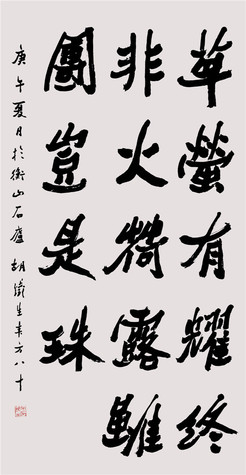 草螢有耀終
非火荷露雖
團豈是珠
庚午夏日於衡山石廬 胡 生年方八十